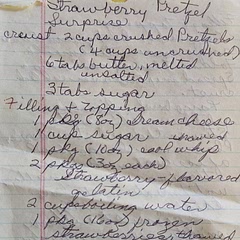 Strawberry Pretzel
Surprise
crust - 2 cups crushed Pretzels
(4 cups uncrushed)
6 tabs butter, melted
unsalted
3 tabs sugar
Filling & topping
1 pkg (8oz) cream cheese
1 cup sugar
1 pkg (10oz) cool whip
2 pkg (3oz each)
strawberry-flavored
gelatin
2 cups boiling water
1 pkg (16oz) frozen
strawberries thawed